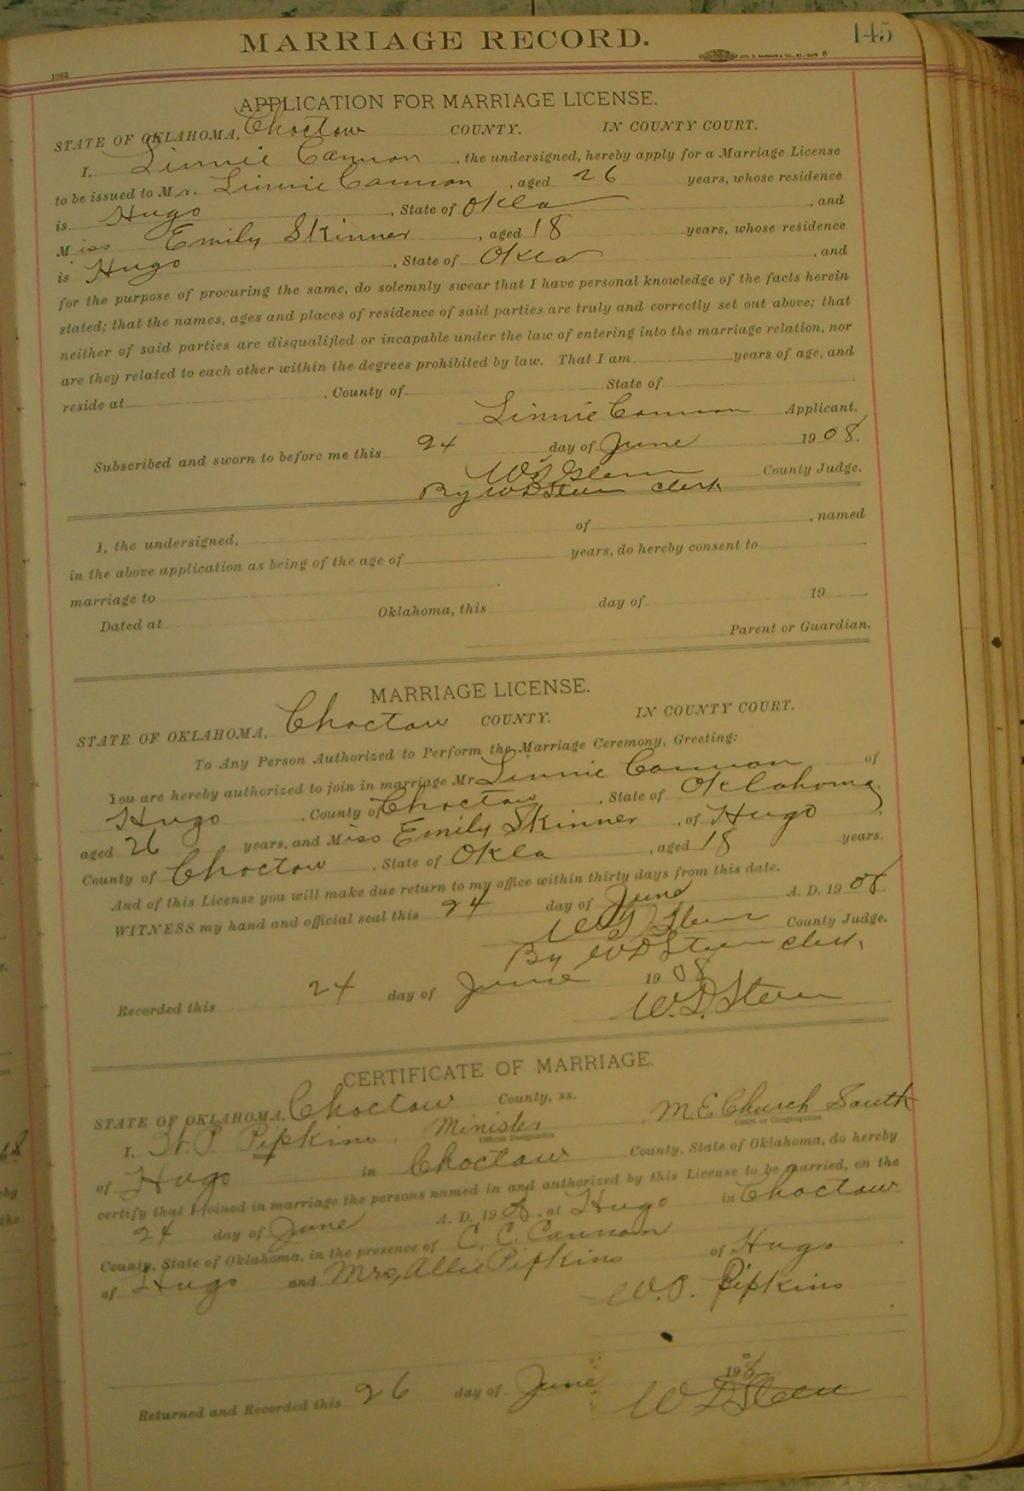 MARRIAGE RECORD. 145
1062
APPLICATION FOR MARRIAGE LICENSE.
STATE OF OKLAHOMA, Choctaw COUNTY. IN COUNTY COURT.
I, Linnie Cannon, the undersigned, hereby apply for a Marriage License
to be issued to Mr. Linnie Cannon, aged 26 years, whose residence
is Hugo, State of Okla, and
Miss Emily Skinner, aged 18 years, whose residence
is Hugo, State of Okla, and
for the purpose of procuring the same, do solemnly swear that I have personal knowledge of the facts herein
stated; that the names, ages and places of residence of said parties are truly and correctly set out above; that
neither of said parties are disqualified or incapable under the law of entering into the marriage relation, nor
are they related to each other within the degrees prohibited by law. That I am years of age, and
reside at, County of State of
Linnie Cannon Applicant.
Subscribed and sworn to before me this 24 day of June 1908.
County Judge.
By W D Steen Clerk
I, the undersigned, of, named
in the above application as being of the age of years, do hereby consent to
marriage to
Dated at Oklahoma, this day of 19
Parent or Guardian.
MARRIAGE LICENSE.
STATE OF OKLAHOMA, Choctaw COUNTY. IN COUNTY COURT.
To Any Person Authorized to Perform the Marriage Ceremony, Greeting:
You are hereby authorized to join in marriage Mr. Linnie Cannon of
Hugo, County of Choctaw, State of Oklahoma,
aged 26 years, and Miss Emily Skinner, of Hugo
County of Choctaw, State of Okla, aged 18 years.
And of this License you will make due return to my office within thirty days from this date.
WITNESS my hand and official seal this 24 day of June A. D. 1908.
County Judge.
By W D Steen Clerk,
Recorded this 24 day of June 1908
W. D. Steen
CERTIFICATE OF MARRIAGE.
STATE OF OKLAHOMA, Choctaw County, ss.
I, W. P. Pipkins, Minister M. E. Church South
Official Designation Court or Congregation
of Hugo in Choctaw County, State of Oklahoma, do hereby
certify that I joined in marriage the persons named in and authorized by this License to be married, on the
24 day of June A. D. 1908, at Hugo in Choctaw
County, State of Oklahoma, in the presence of C. C. Cannon of Hugo
of Hugo and Mrs, Allie Pipkins
Pipkins
Returned and Recorded this 26 day of June 1908
W D Steen